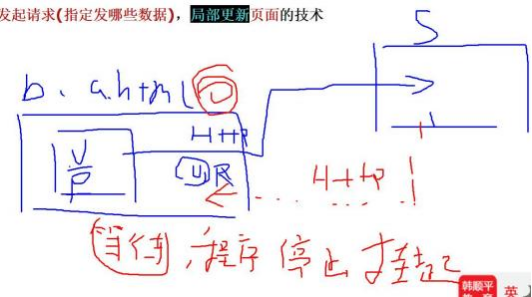 发起请求(指定发哪些数据)，局部更新页面的技术
S
b. a.html
Http
U
P
R
Http
等待，程序 停止 挂起
韩顺平
英